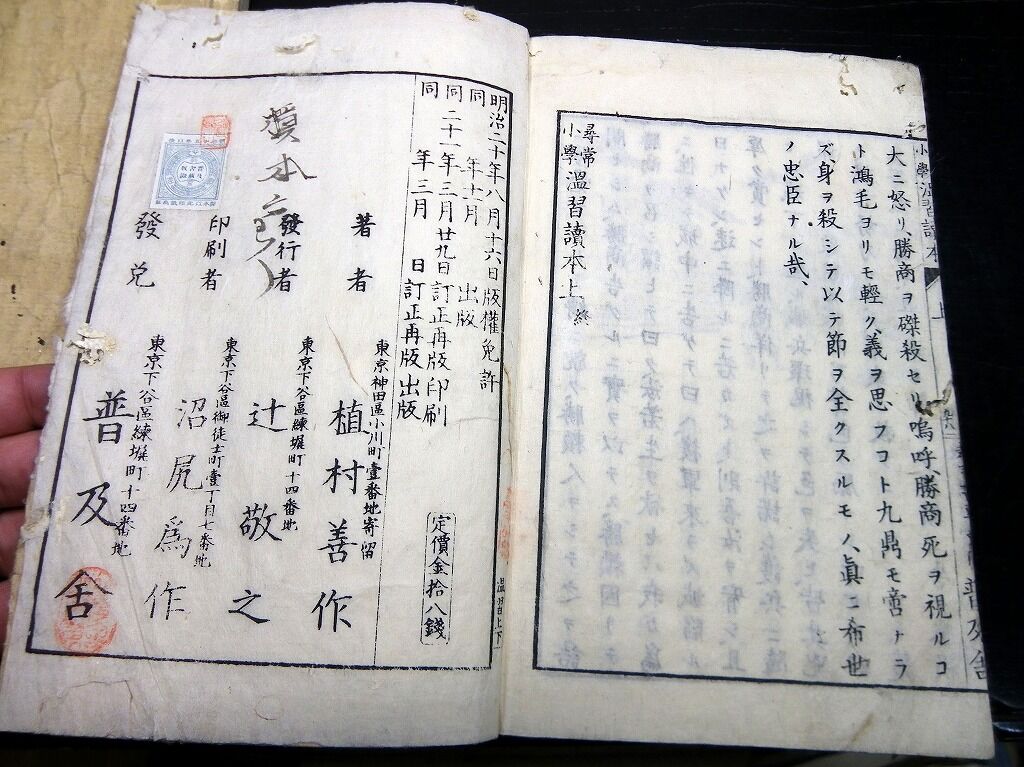 小學溫習讀本
上
普及舍
大ニ怒リ、勝商ヲ磔殺セリ嗚呼、勝商死ヲ視ルコ
ト鴻毛ヨリモ輕ク、義ヲ思フコト九鼎モ啻ナラ
ズ、身ヲ殺シテ以テ節ヲ全クスルモノハ、眞ニ希世
ノ忠臣ナル哉、
尋常小學溫習讀本上 終
明治二十年八月十六日版權免許
同 年十一月 出版
同 二十一年三月廿九日訂正再版印刷
同 年三月 日訂正再版出版
定價金拾八錢
溫習上下
著者
東京神田區小川町壹番地寄留
植村善作
發行者
東京下谷區練塀町十四番地
辻敬之
印刷者
東京下谷區御徒士町壹丁目七番地
沼尻爲作
發兌
東京下谷區練塀町十四番地
普及舍